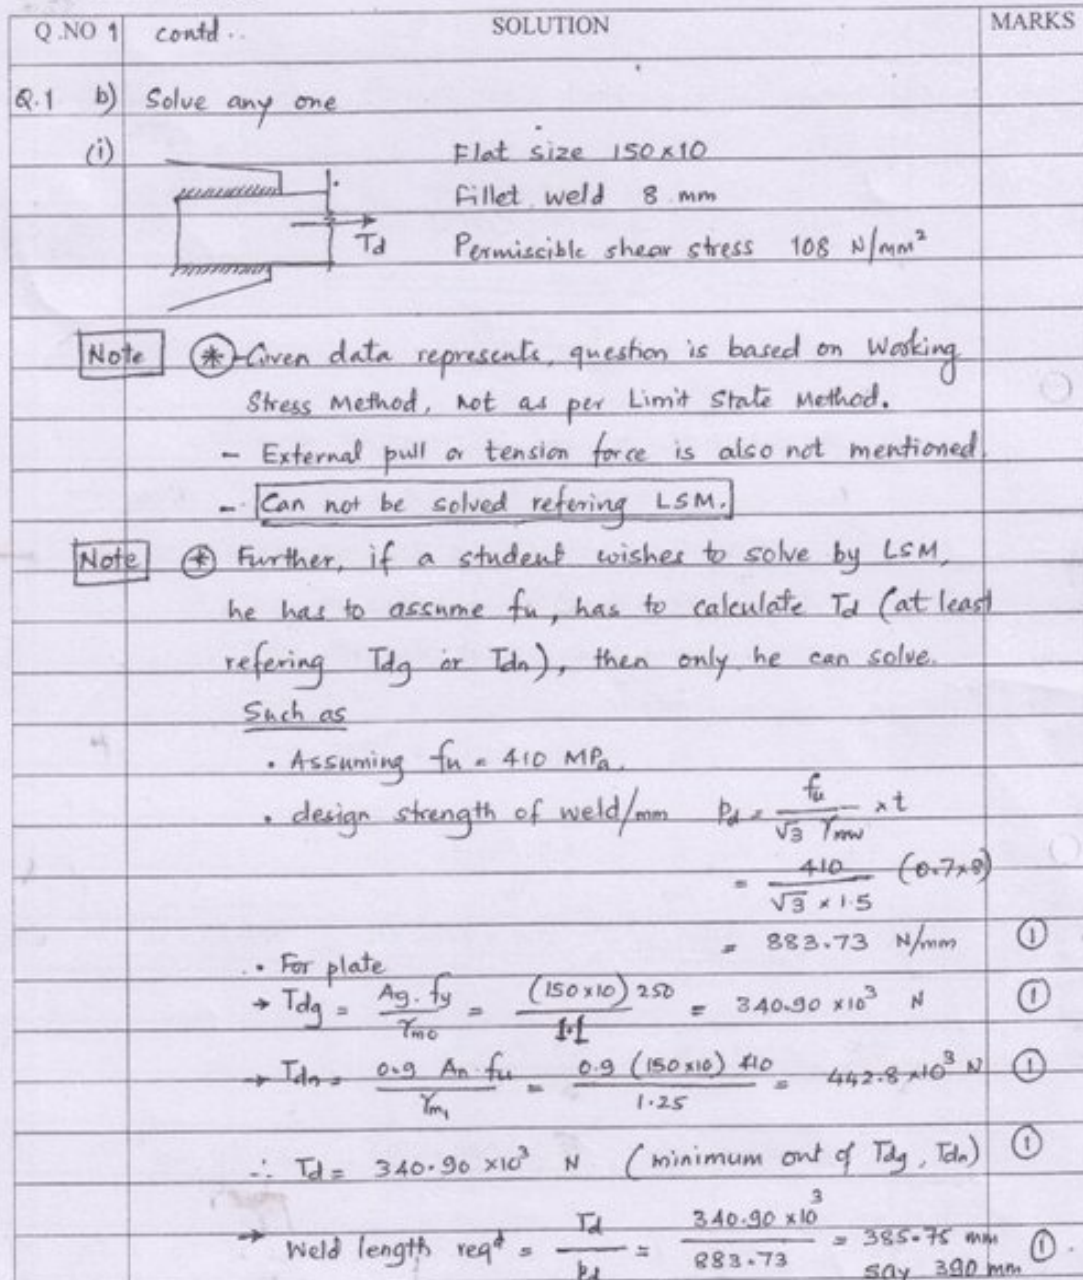 Q.NO 1 contd.. SOLUTION MARKS
Q.1 b) Solve any one
(i) Flat size 150x10
Fillet weld 8 mm
Td
Permiscible shear stress 108 N/mm²
Note * - Given data represents, question is based on Working
Stress Method, not as per Limit State Method.
- External pull or tension force is also not mentioned.
- Can not be solved refering LSM.
Note * Further, if a student wishes to solve by LSM,
he has to assume fu, has to calculate Td (at least
refering Tdg or Tdn), then only he can solve.
Such as
• Assuming fu = 410 MPa.
• design strength of weld/mm Pd = fu / √3 γmw × t
= 410 / √3 × 1.5 (0.7×8)
= 883.73 N/mm ①
• For plate
→ Tdg = Ag. fy / γmo = (150×10) 250 / 1.1 = 340.90 ×10³ N ①
→ Tdn = 0.9 An fu / γm1 = 0.9 (150×10) 410 / 1.25 = 442.8 ×10³ N ①
∴ Td = 340.90 ×10³ N (minimum out of Tdg, Tdn) ①
→ Weld length reqd = Td / Pd = 340.90 ×10³ / 883.73 = 385.75 mm ①
say 390 mm